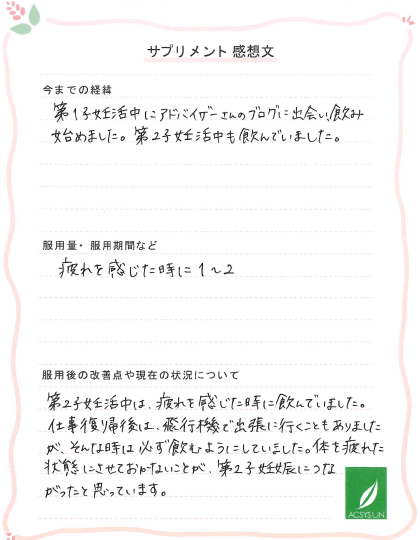 サプリメント 感想文
今までの経緯
第1子妊活中にアドバイザーさんのブログに出会い飲み
始めました。第2子妊活中も飲んでいました。
服用量・服用期間など
疲れを感じた時に 1~2
服用後の改善点や現在の状況について
第2子妊活中は、疲れを感じた時に飲んでいました。
仕事復帰後は、飛行機で出張に行くこともありました
が、そんな時は必ず飲むようにしていました。体を疲れた
状態にさせておかないことが、第2子妊娠につな
がったと思っています。
ACSYSUN